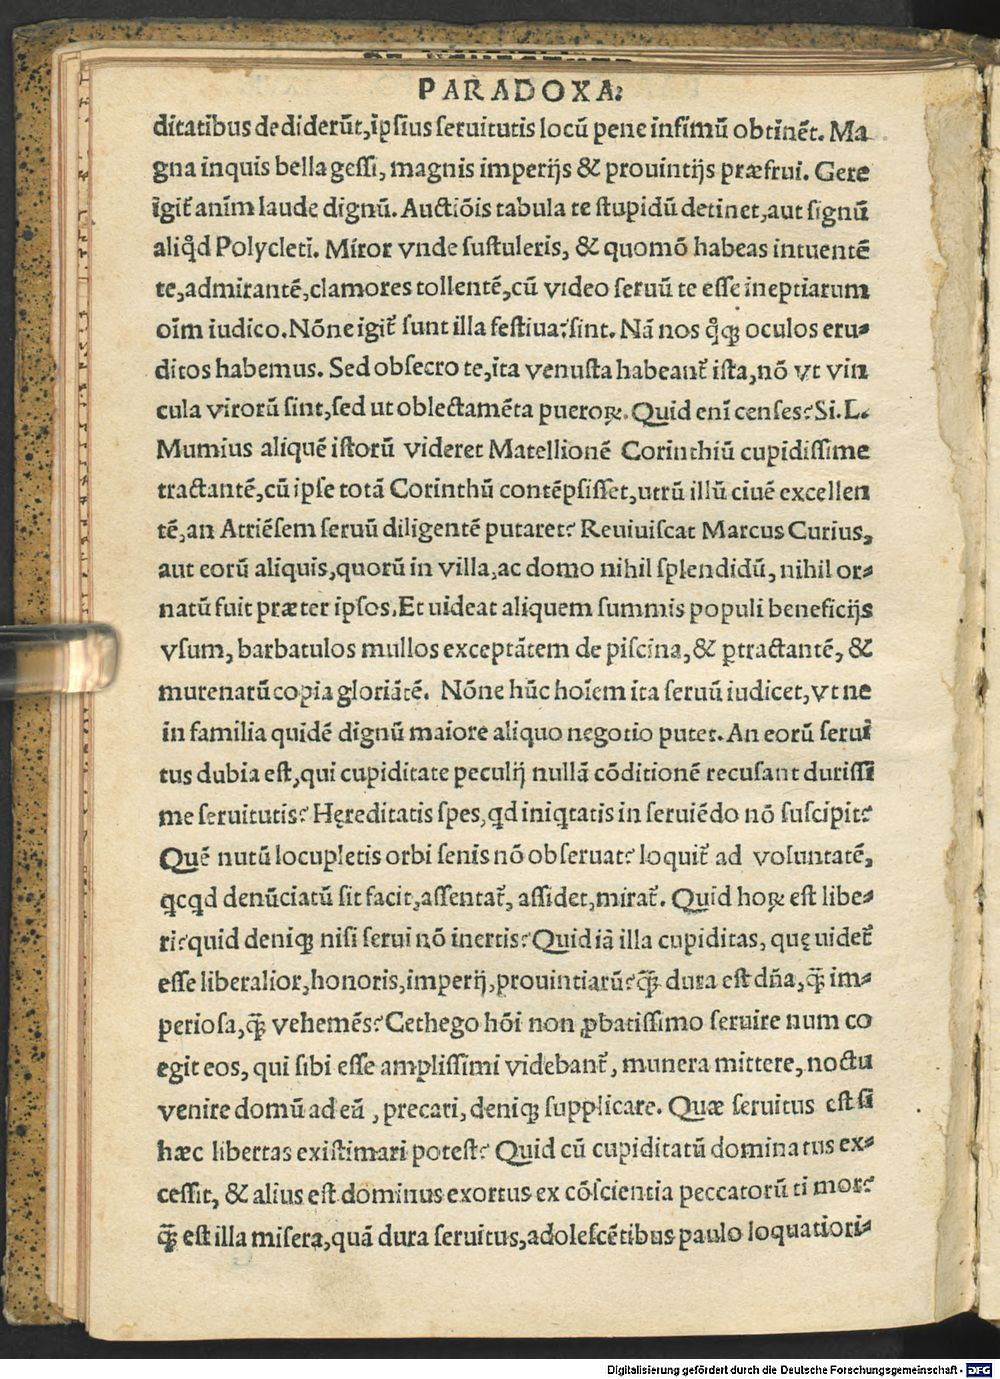 PARADOXA:
ditatibus dediderūt, ip̄sius seruitutis locū pene infimū obtinēt. Ma
gna inquis bella gessi, magnis imperijs & prouintijs præfrui. Gere
igit᷑ anīm laude dignū. Auctiōis tabula te stupidū detinet, aut signū
aliqd̄ Polycleti. Miror vnde sustuleris, & quomō habeas intuentē
te, admirantē, clamores tollentē, cū video seruū te esse ineptiarum
oīm iudico. Nōne igit᷑ sunt illa festiua? sint. Nā nos qͦqꝫ oculos eru-
ditos habemus. Sed obsecro te, ita venusta habeant᷑ ista, nō vt vin
cula virorū sint, sed ut oblectamēta pueroꝝ. Quid enī censes? Si. L.
Mumius aliquē istorū videret Matellionē Corinthiū cupidissime
tractantē, cū ipse totā Corinthū contēpsisset, utrū illū ciuē excellen
tē, an Atriēsem seruū diligentē putaret? Reuiuiscat Marcus Curius,
aut eorū aliquis, quorū in villa, ac domo nihil splendidū, nihil or-
natū fuit præter ipsos. Et uideat aliquem summis populi beneficijs
vsum, barbatulos mullos exceptātem de piscina, & ꝑtractantē, &
murenarū copia gloriātē. Nōne hūc hoīem ita seruū iudicet, vt ne
in familia quidē dignū maiore aliquo negotio putet. An eorū serui
tus dubia est, qui cupiditate peculij nullā cōditionē recusant durissi
me seruitutis? Hęreditatis spes, qd iniqtatis in seruiēdo nō suscipit?
Quē nutū locupletis orbi senis nō obseruat? loquit᷑ ad voluntatē,
qcqd denūciatū sit facit, assentat᷑, assidet, mirat᷑. Quid hoꝝ est libe-
ri? quid deniqꝫ nisi serui nō inertis? Quid iā illa cupiditas, quę uidet᷑
esse liberalior, honoris, imperij, prouintiarū? qꝫ̄ dura est dña, qꝫ̄ im-
periosa, qꝫ̄ vehemēs? Cethego hōi non ꝓbatissimo seruire num co
egit eos, qui sibi esse amplissimi videbant᷑, munera mittere, noctu
venire domū ad eū, precari, deniqꝫ supplicare. Quæ seruitus est si
hæc libertas existimari potest? Quid cū cupiditatū dominatus ex-
cessit, & alius est dominus exortus ex cōscientia peccatorū timor?
qꝫ̄ est illa misera, quā dura seruitus, adolescētibus paulo loquatiori-
Digitalisierung gefördert durch die Deutsche Forschungsgemeinschaft - DFG